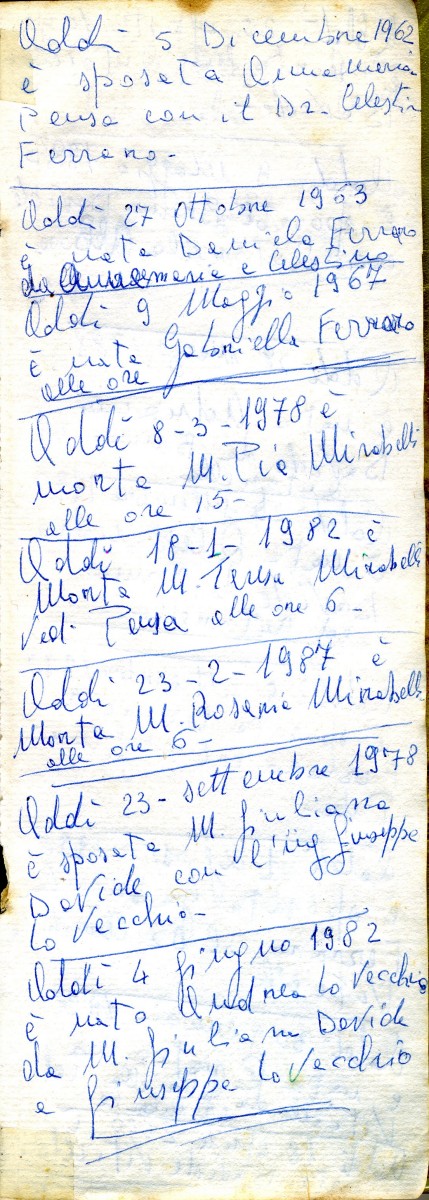 Addì 5 Dicembre 1962
è sposata Annamaria
Pensa con il Dr. Celestin
Ferraro -
Addì 27 Ottobre 1963
è nata Daniela Ferraro
da Annamaria e Celestino
Addì 9 Maggio 1967
è nata Gabriella Ferraro
alle ore
Addì 8-3-1978 è
morta M. Pia Mirabelli
alle ore 15 -
Addì 18-1-1982 è
Morta M. Teresa Mirabelli
Ved. Pensa alle ore 6 -
Addì 23-2-1987 è
Morta M. Rosaria Mirabelli
alle ore 6 -
Addì 23 - settembre 1978
è sposata M. Giuliana
Davide con l'ing Giuseppe
Lo Vecchio -
Addì 4 giugno 1982
è nato Andrea Lo Vecchio
da M. Giuliana Davide
e Giuseppe Lo Vecchio